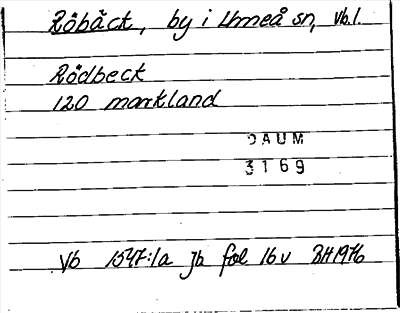 Röbäck, by i Umeå sn, Vb.l.
Rödbeck
120 markland
DAUM
3169
Vb 1547:1a jb fol 16v BH1976